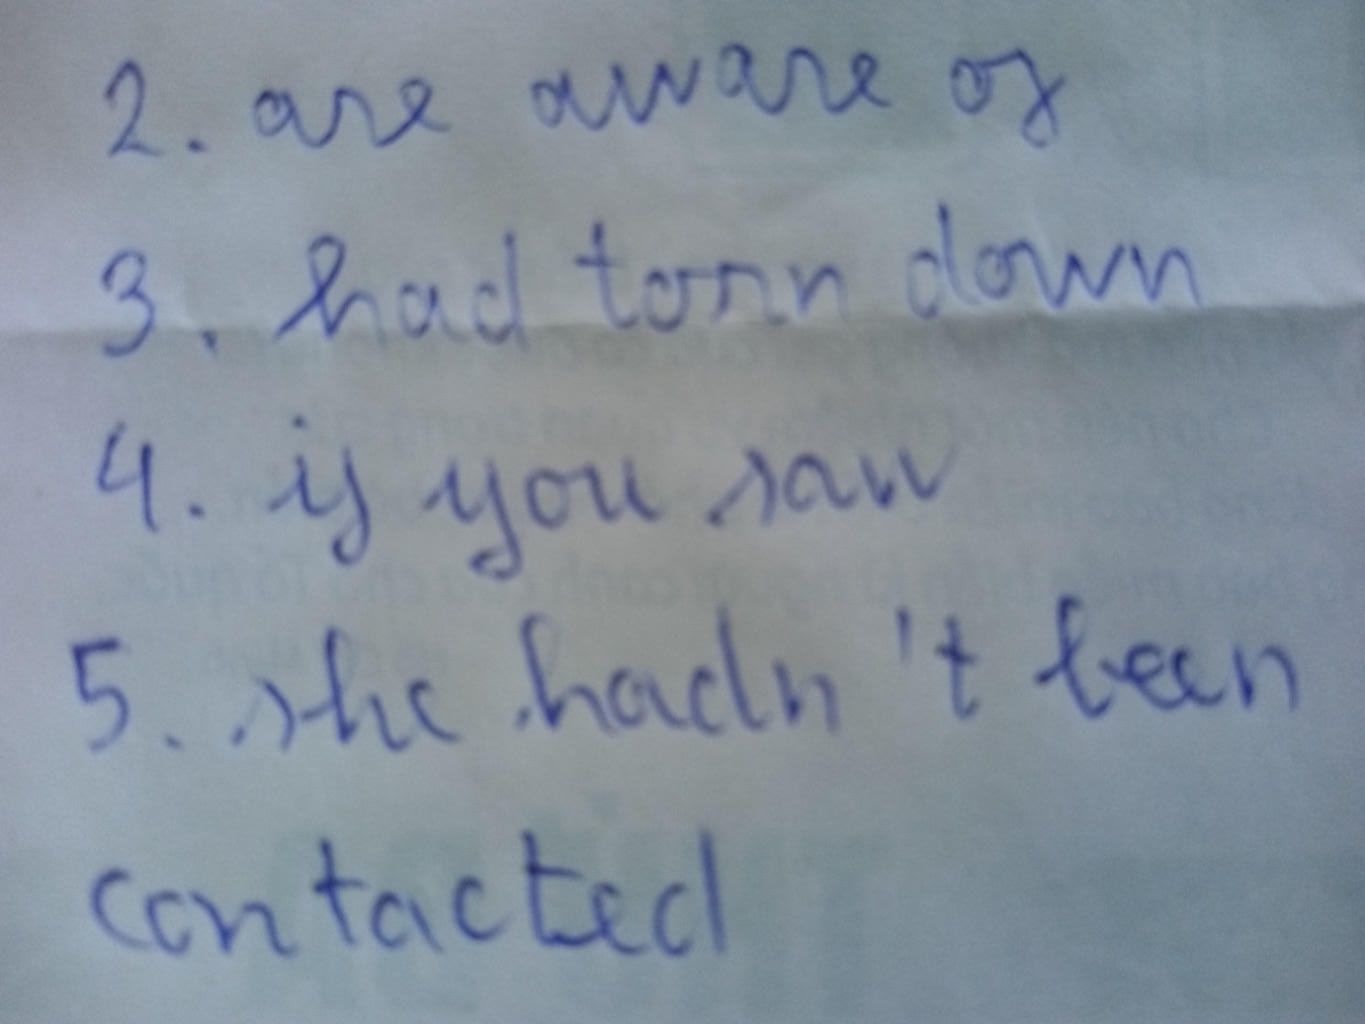 2. are aware of
3. had torn down
4. if you saw
5. she hadn't been
contacted